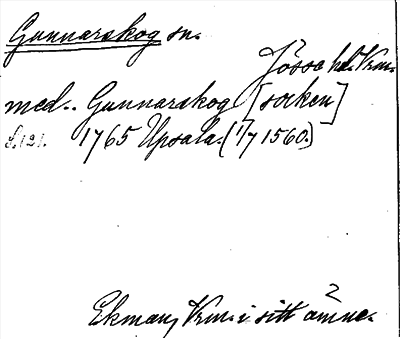 Gunnarskog sn.
Jösse hd. Vrm.
med. Gunnarskog [socken]
S.121. 1765 Upsala. (1/7 1560.)
2
Ekman, Vrm. i sitt ämne.